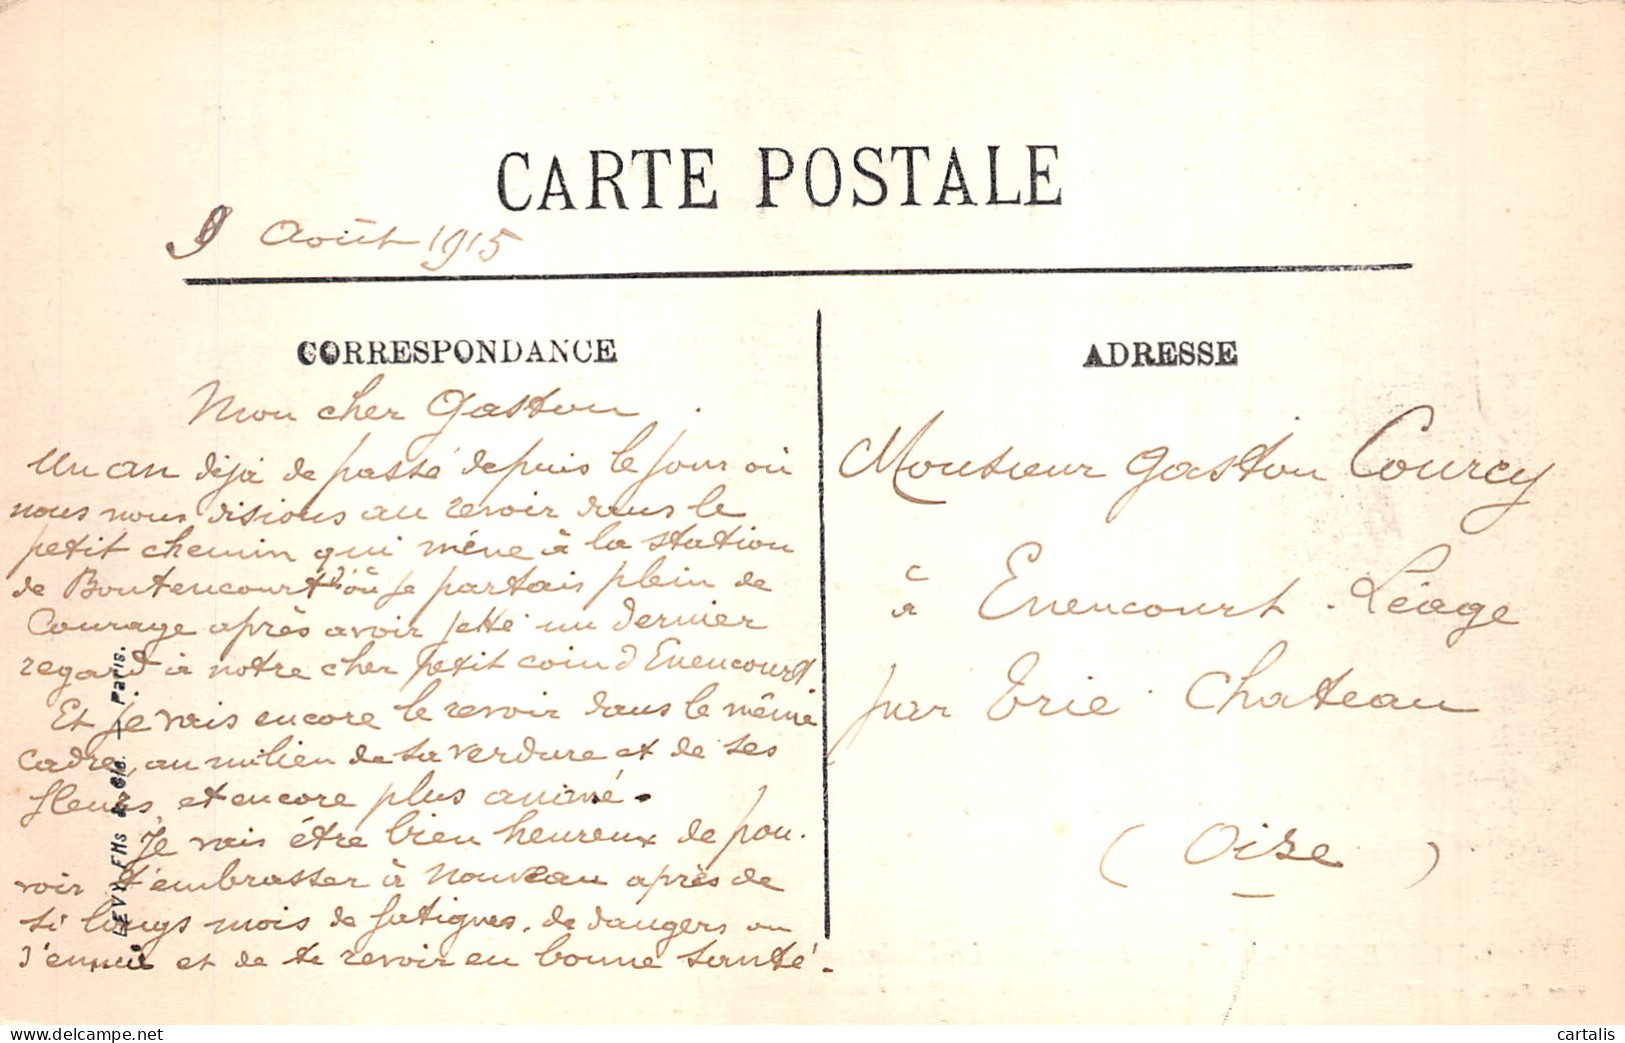 CARTE POSTALE
9 Août 1915
CORRESPONDANCE
Mon cher Gaston
Un an déjà de passé depuis le jour où
nous nous disions au revoir dans le
petit chemin qui mène à la station
de Boutencourt d'où je partais plein de
Courage après avoir jetté un dernier
regard à notre cher petit coin d'Enencourt
Et je vais encore le revoir dans le même
cadre, au milieu de sa verdure et de ses
fleurs, et encore plus animé.
Je vais être bien heureux de pou-
voir t'embrasser à nouveau après de
si longs mois de fatigues, de dangers ou
d'ennui et de te revoir en bonne santé.
LEVY FILS & Cie. — Paris.
ADRESSE
Monsieur Gaston Courcy
à Enencourt-Léage
par Trie Chateau
(Oise)
cartalis